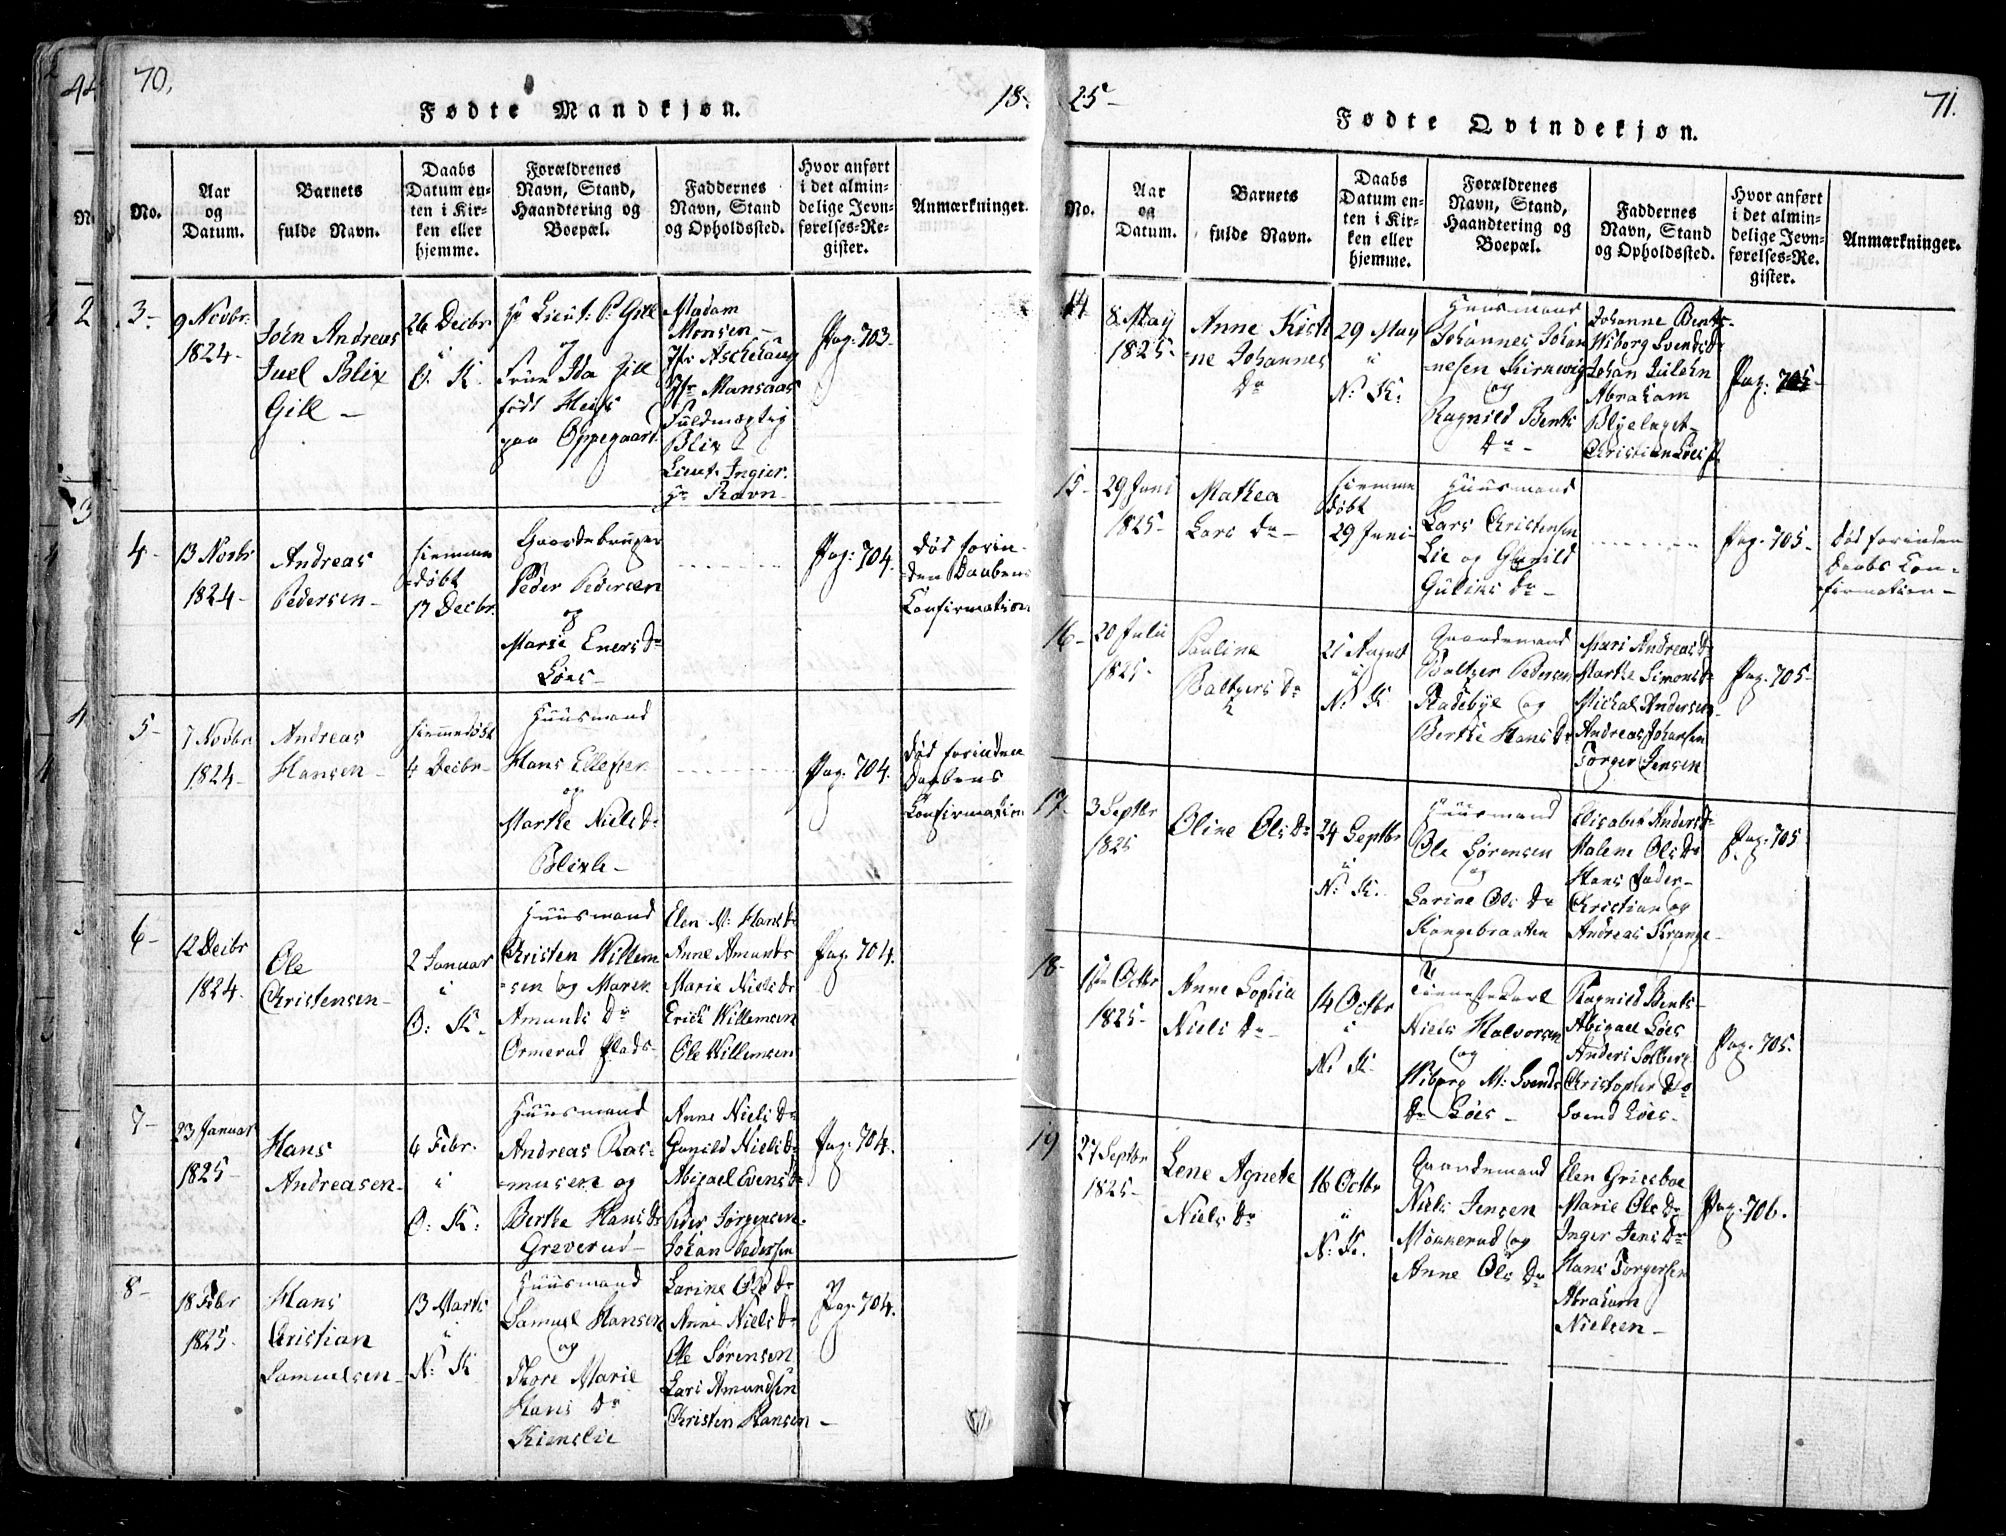 70.
Fødte Mandkjøn.
18-
No.
Aar
og
Datum.
Barnets
fulde Navn.
Daabs
Datum en-
ten i Kir-
ken eller
hjemme.
Forældrenes
Navn, Stand,
Haandtering og
Boepæl.
Faddernes
Navn, Stand
og Opholdssted.
Hvor anført
i det almin-
delige Jevn-
førelses-Re-
gister.
Anmærkninger.
3-
9 Novbr:
1824-
John Andreas
Juel Blix
Gill -
26 Decbr
i
O. K.
Hr Lieut: P. Gill
og
Frue Ida Gill
født Heiss
paa Oppegaard
Madam
Monsen -
Jfr Aschehaug
Jfr Mansaas
Fuldmægtig
Blix -
Lieut. Ingier.
Hr Ravn -
Pag: 703.
4-
13 Novbr
1824-
Andreas
Pedersen -
hiemme
døbt
17 Decbr.
Gaardebruger
Peder Pedersen
og
Marie Eners Dr
Løes -
Pag: 704.
død forin-
den Daabens
Confirmation
5-
7 Novbr
1824-
Andreas
Hansen -
hiemmedøbt
4 Decbr -
Huusmand
Hans Ellefsen
og
Marthe Niels Dr
Blixle -
Pag. 704.
død forinden
Daabens
Confirmation
6-
12 Decbr
1824.
Ole
Christensen -
2 Januar
i
O: K.
Huusmand
Christen Willem
=sen og Maren
Amunds Dr
Ormerud Plads -
Elen M: Hans Dr
Anne Amunds
Marie Niels Dr
Erick Willemsen
Ole Willemsen
Pag. 704.
7-
23 Januar
1825-
Hans
Andreasen -
6 Febr.
i
O: K:
Huusmand
Andreas Ras-
=musen og
Berthe Hans Dr
Greverud -
Anne Niels Dr
Gunild Niels Dr
Abigael Evens Dr
Peder Jørgensen.
Johan Pedersen
Pag: 704.
8-
18 Febr
1825-
Hans
Christian
Samuelsen -
13 Marts
i
N: K
Huusmand
Samuel Hansen
og
Thore Marie
Hans Dr
Kienslie
Larine Ole Dr
Anne Niels Dr
Ole Sørensen
Lars Amundsen
Christen Hansen -
Pag. 704.
25-
71.
Fødte Qvindekjøn.
No.
Aar
og
Datum.
Barnets
fulde Navn.
Daabs
Datum en-
ten i Kir-
ken eller
hjemme.
Forældrenes
Navn, Stand,
Haandtering og
Boepæl.
Faddernes
Navn, Stand
og Opholdssted.
Hvor anført
i det almin-
delige Jevn-
førelses-Re-
gister.
Anmærkninger.
14
8 May
1825-
Anne Kirsti
=ne Johannes
Dr
29 May
i
N: K:
Huusmand
Johannes Johan
=nesen
og
Ragnild Bents
Dr -
Johanne Bents-
Wiborg Svends Dr
Johan
Abraham
Blyelaget -
Christian Løes
Pag: 705-
15-
29 Juni
1825-
Mathea
Lars Dr -
hiemme
døbt
29 Juni -
Huusmand
Lars Christensen
Lie og Gunild
Guliks Dr -
Pag. 705-
død forinden
Daabs Con-
firmation -
16-
20 Julii
1825-
Pauline
Baltzers Dr
21 August
i
N. K
Gaardemand
Baltzer Pedersen
Stadebye og
Berthe Hans Dr
Mari Andreas Dr
Marthe Simons Dr
Michal Andersen
Andreas Johansen
Torger Jensen
Pag. 705-
17-
3 Septbr
1825
Oline Ols Dr
24 Septbr
i
N: K.
Huusmand
Ole Sørensen
og
Larine Ols Dr
Kongebraaten
Elisabeth Anders Dr
Malene Ols Dr
Hans
Christian og
Andreas Trange -
Pag. 705
18-
1ste Octbr
1825-
Anne Sophia
Niels Dr -
14 Octbr
i
N. K.
Tienestekarl
Niels Halvorsen
og
Wiborg M: Svends
Dr Løes -
Ragnild Bents -
Abigael Løes
Anders Solberg
Christopher Dr
Svend Løes -
Pag. 705.
19
27 Septbr
1825-
Lene Agnete
Niels Dr
16 Octbr
i
N: K.
Gaardemand
Niels Jensen
Munkerud og
Anne Ols Dr
Elen Grissboe
Marie Ols Dr
Inger Jens Dr
Hans Torgersen
Abraham
Nielsen -
Pag. 706.